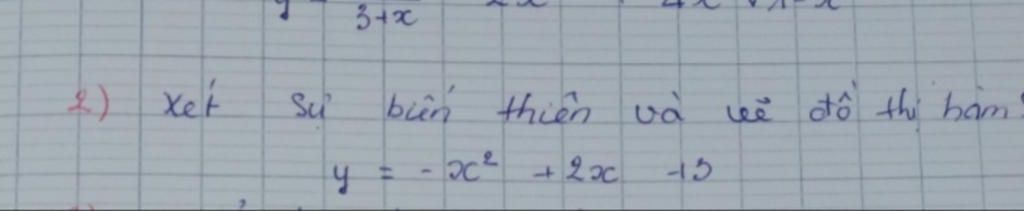 3+x
2) xét sự biến thiên và vẽ đồ thị hàm
y = -x² + 2x +3